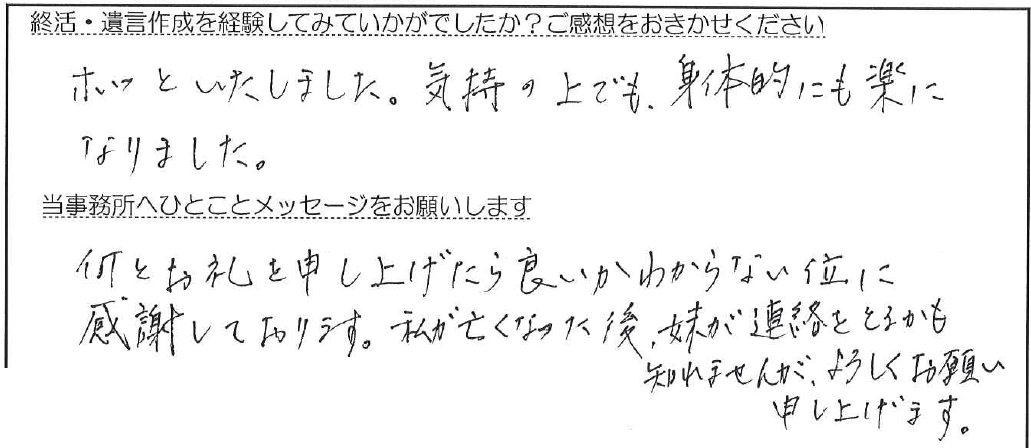 終活・遺言作成を経験してみていかがでしたか？ご感想をおきかせください
ホッといたしました。気持の上でも、身体的にも楽に
なりました。
当事務所へひとことメッセージをお願いします
何とお礼を申し上げたら良いかわからない位に
感謝しております。私が亡くなった後、妹が連絡をとるかも
知れませんが、よろしくお願い
申し上げます。